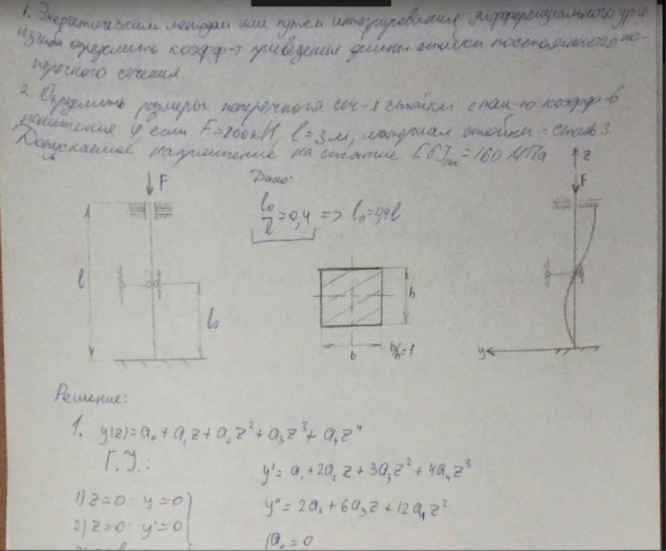 1. Энергетическим методом или путём интегрирования дифференциального ур-я
изгиба определить коэфф-т приведения длины стойки постоянного по-
перечного сечения.
2. Определить размеры поперечного сеч-я стойки с пом-ю коэфф-в
понижения φ, если F=200кН, l=3м, материал стойки - сталь 3.
Допускаемое напряжение на сжатие [σ]сж=160 МПа
F
Дано:
l₀/l=0,4 => l₀=0,4l
z
F
l
l₀
h
b
b/h=1
y
Решение:
1. y(z)=a₀+a₁z+a₂z²+a₃z³+a₄z⁴
Г.У.:
y'=a₁+2a₂z+3a₃z²+4a₄z³
1) z=0: y=0
y''=2a₂+6a₃z+12a₄z²
2) z=0: y'=0
a₀=0